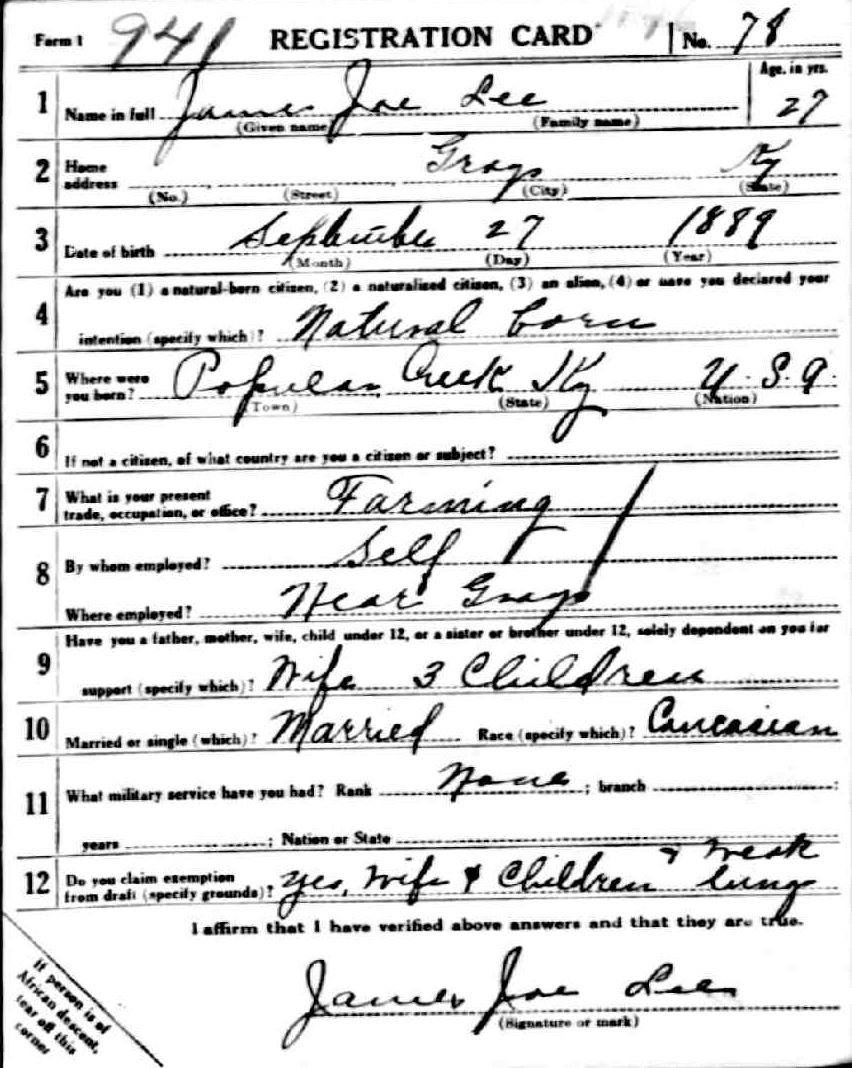 Form 1 941 REGISTRATION CARD No. 78
Age, in yrs.
1 Name in full James Joe Lee 27
(Given name) (Family name)
2 Home address Grays Ky
(No.) (Street) (City) (State)
3 Date of birth September 27 1889
(Month) (Day) (Year)
4 Are you (1) a natural-born citizen, (2) a naturalized citizen, (3) an alien, (4) or have you declared your
intention (specify which)? Natural born
5 Where were you born? Popular Creek Ky U.S.A.
(Town) (State) (Nation)
6 If not a citizen, of what country are you a citizen or subject?
7 What is your present trade, occupation, or office? Farming
8 By whom employed? Self
Where employed? Near Grays
9 Have you a father, mother, wife, child under 12, or a sister or brother under 12, solely dependent on you for
support (specify which)? Wife 3 Children
10 Married or single (which)? Married Race (specify which)? Caucasian
11 What military service have you had? Rank None ; branch ;
years ; Nation or State
12 Do you claim exemption from draft (specify grounds)? Yes, Wife & Children & weak lungs
I affirm that I have verified above answers and that they are true.
James Joe Lee
(Signature or mark)
If person is of
African descent,
tear off this
corner